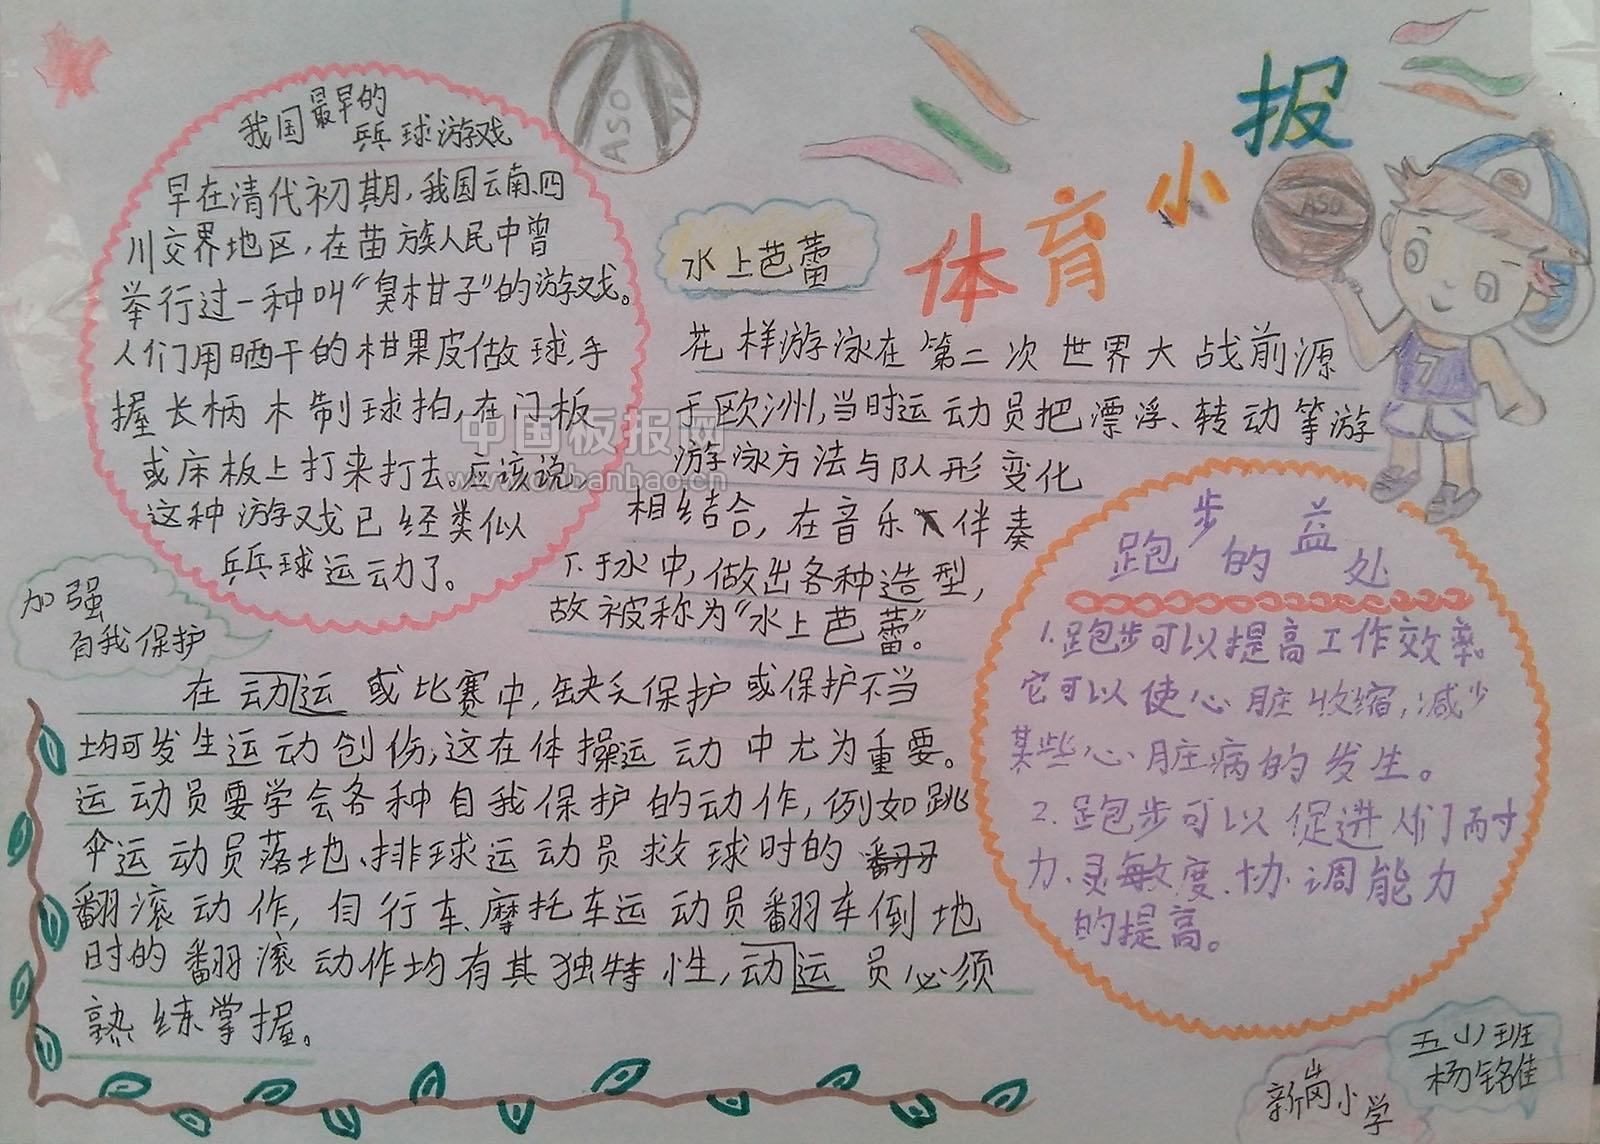 体育小报
ASO
ASO
7
我国最早的
兵球游戏
早在清代初期,我国云南、四
川交界地区,在苗族人民中曾
举行过一种叫“臭柑子”的游戏。
人们用晒干的柑果皮做球,手
握长柄木制球拍,在门板
或床板上打来打去。应该说,
这种游戏已经类似
乒乓球运动了。
水上芭蕾
花样游泳在第二次世界大战前源
于欧洲,当时运动员把漂浮、转动等游
游泳方法与队形变化
相结合,在音乐伴奏
下于水中,做出各种造型,
故被称为“水上芭蕾”。
加强
自我保护
在动运或比赛中,缺乏保护或保护不当
均可发生运动创伤,这在体操运动中尤为重要。
运动员要学会各种自我保护的动作,例如跳
伞运动员落地、排球运动员救球时的
翻滚动作,自行车、摩托车运动员翻车倒地
时的翻滚动作均有其独特性,动运员必须
熟练掌握。
跑步的益处
1.跑步可以提高工作效率。
它可以使心脏收缩,减少
某些心脏病的发生。
2.跑步可以促进人们耐
力、灵敏度、协调能力
的提高。
五小班
杨铭佳
新岗小学
中国板报网
www.chbanbao.cn